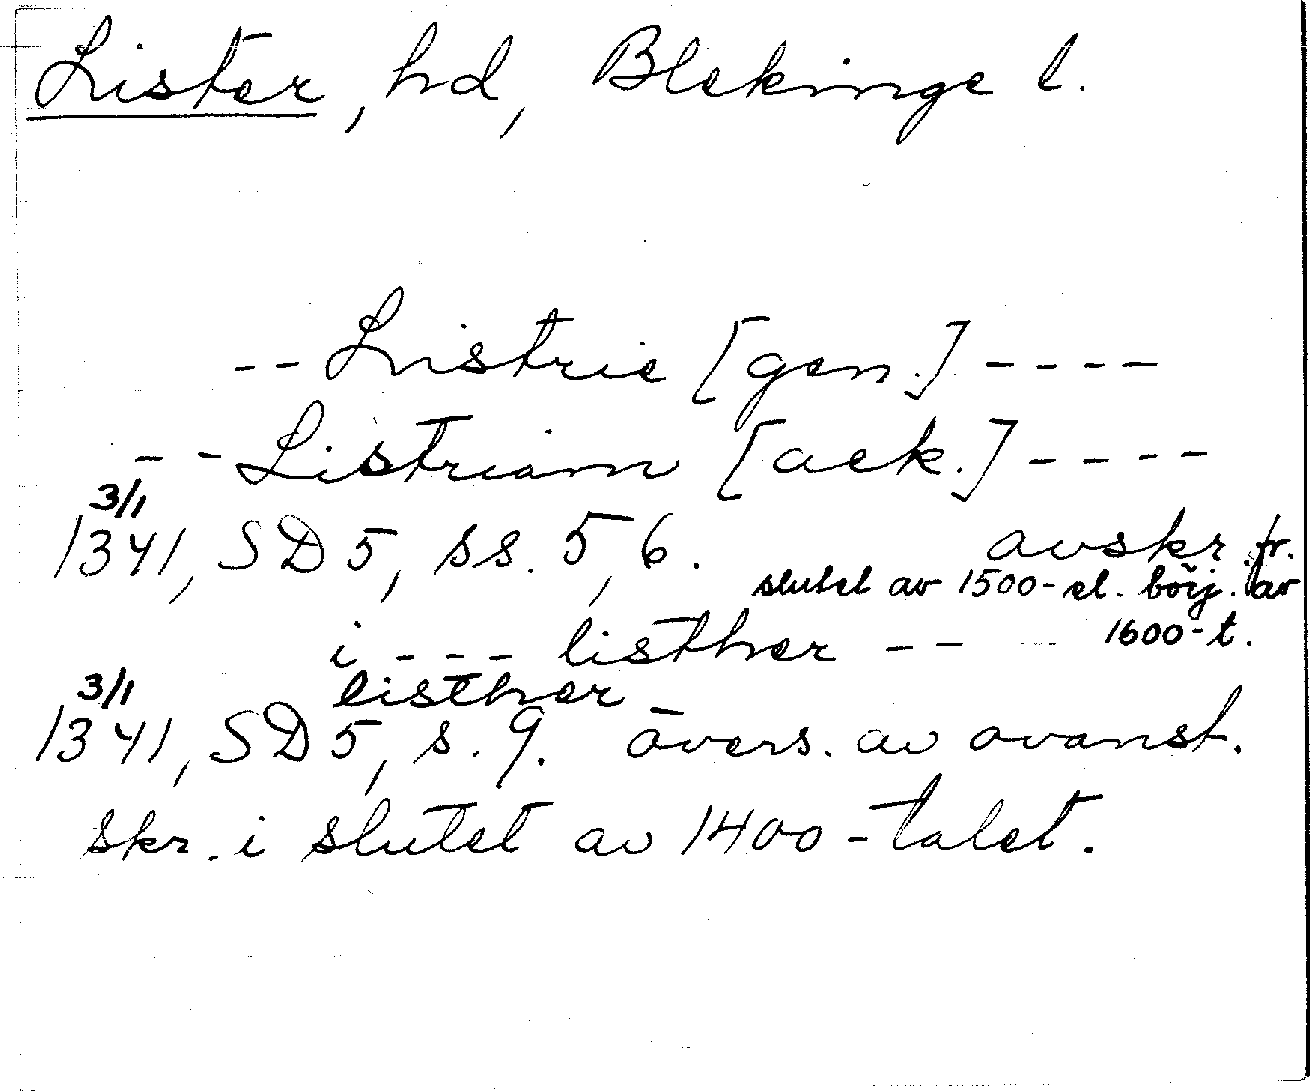 Lister, hd, Blekinge l.
-- Listrie [gen.] ----
-- Listriam [ack.] ----
3/1
1341, SD 5, ss. 5, 6. avskr. fr.
slutet av 1500- el. börj. av
1600-t.
i --- listher --
listher
3/1
1341, SD 5, s. 9. övers. av ovanst.
skr. i slutet av 1400-talet.